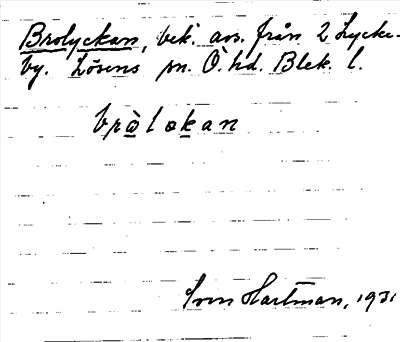 Brolyckan, bek. avs. från 2 Lycke-
by. Lösens sn. Ö. hd. Blek. l.
brò̱lo̱ka̱n
Sven Hartman, 1931